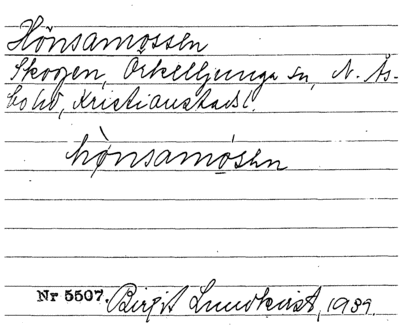 Hönsamossen
Skogen, Örkelljunga sn, N. Ås-
bo hd, Kristianstads l.
hø̀nsamósen
Nr 5507. Birgit Lundkvist, 1939.